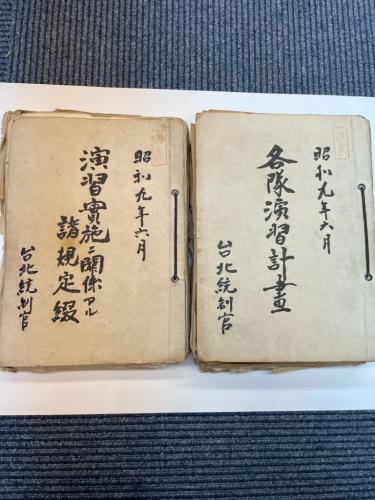 昭和九年六月
各隊演習計畫
台北統制官
昭和九年六月
演習實施ニ關係アル
諸規定綴
台北統制官